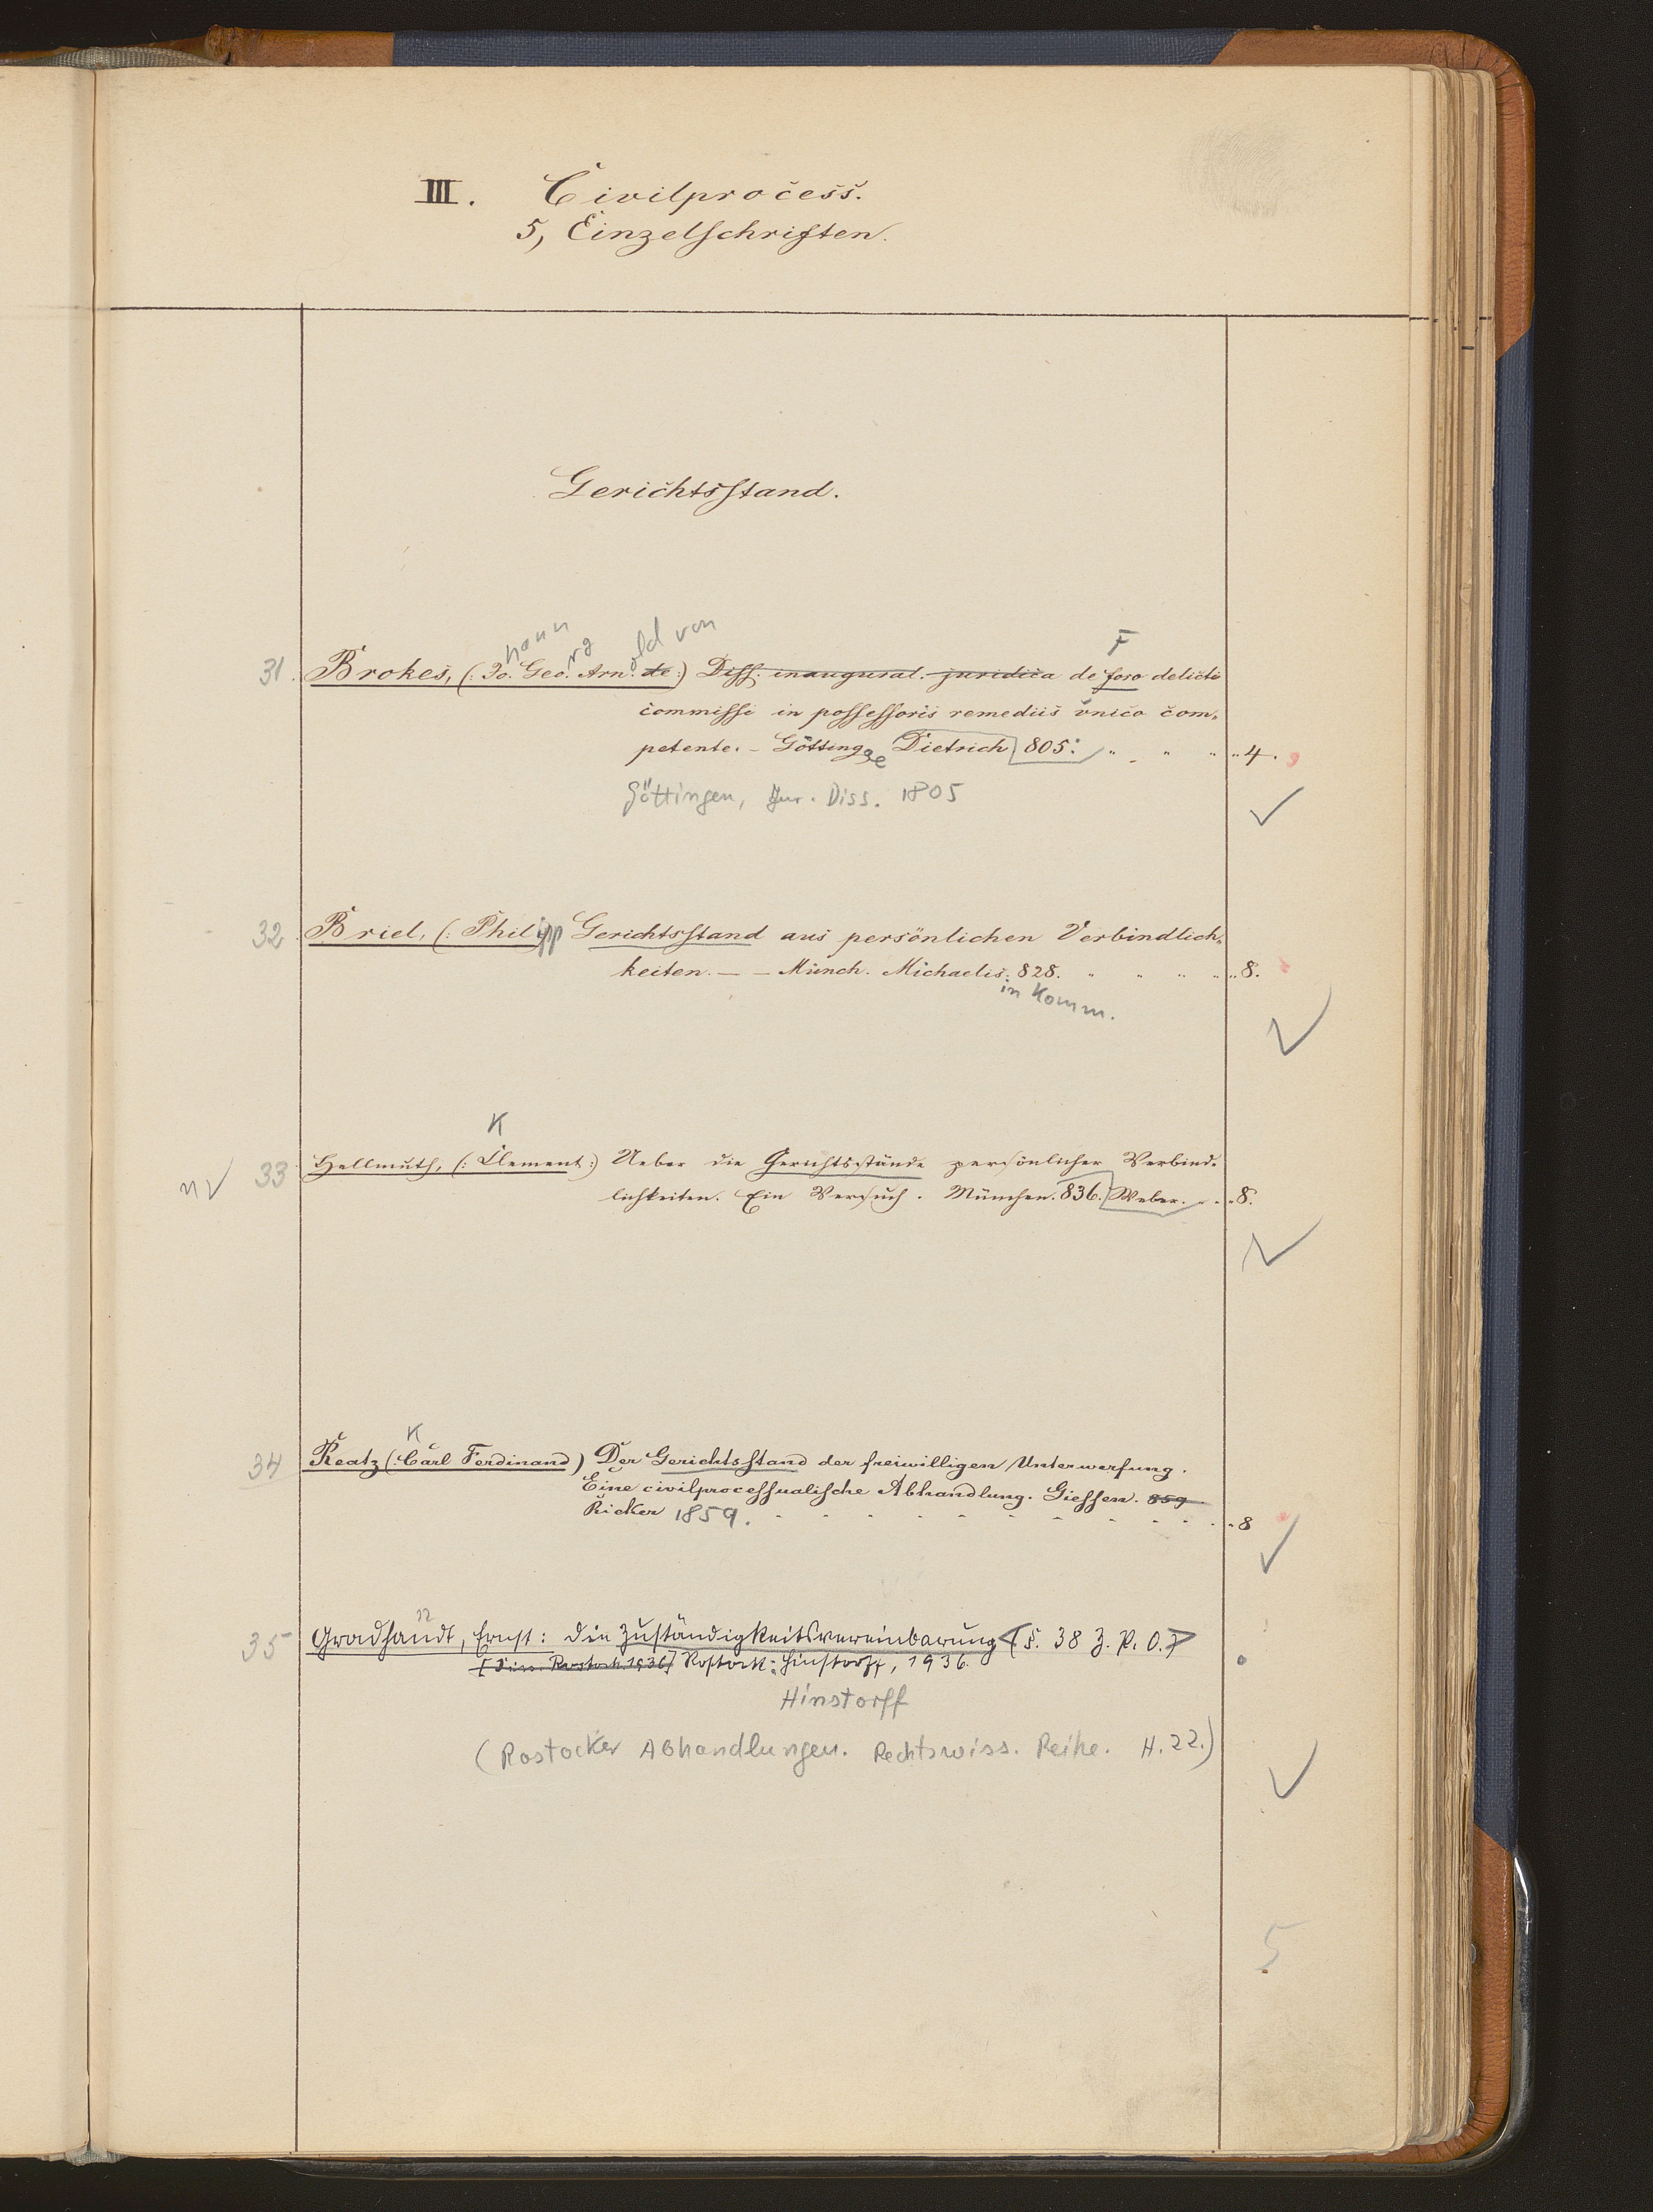 III. Civilprocess.
5, Einzelschriften.
Gerichtsstand.
hann rg old von F
31. Brokes, (: Jo. Geo. Arn. de :) Diss. inaugural. juridica de foro delicti
commissi in possessoris remediis unico com-
petente. – Göttingae Dietrich 805. " " " " 4.
Göttingen, Jur. Diss. 1805
32. Briel, (: Philipp Gerichtsstand aus persönlichen Verbindlich-
keiten. – – Münch. Michaelis. 828. " " " " 8.
in Komm.
K
nv 33 Hellmuth, (: Clement :) Ueber die Gerichtsstände persönlicher Verbind-
lichkeiten. Ein Versuch. München. 836. Weber. " " 8.
K
34 Reatz (: Carl Ferdinand) Der Gerichtsstand der freiwilligen Unterwerfung.
Eine civilprocessualische Abhandlung. Giessen. 859.
Ricker 1859. " 8
n
35 Gradhandt, Ernst: Die Zuständigkeitsvereinbarung (§. 38 Z. P. O.)
[Diss. Rostock 1936] Rostock: Hinstorff, 1936.
Hinstorff
(Rostocker Abhandlungen. Rechtswiss. Reihe. H. 22.)
5